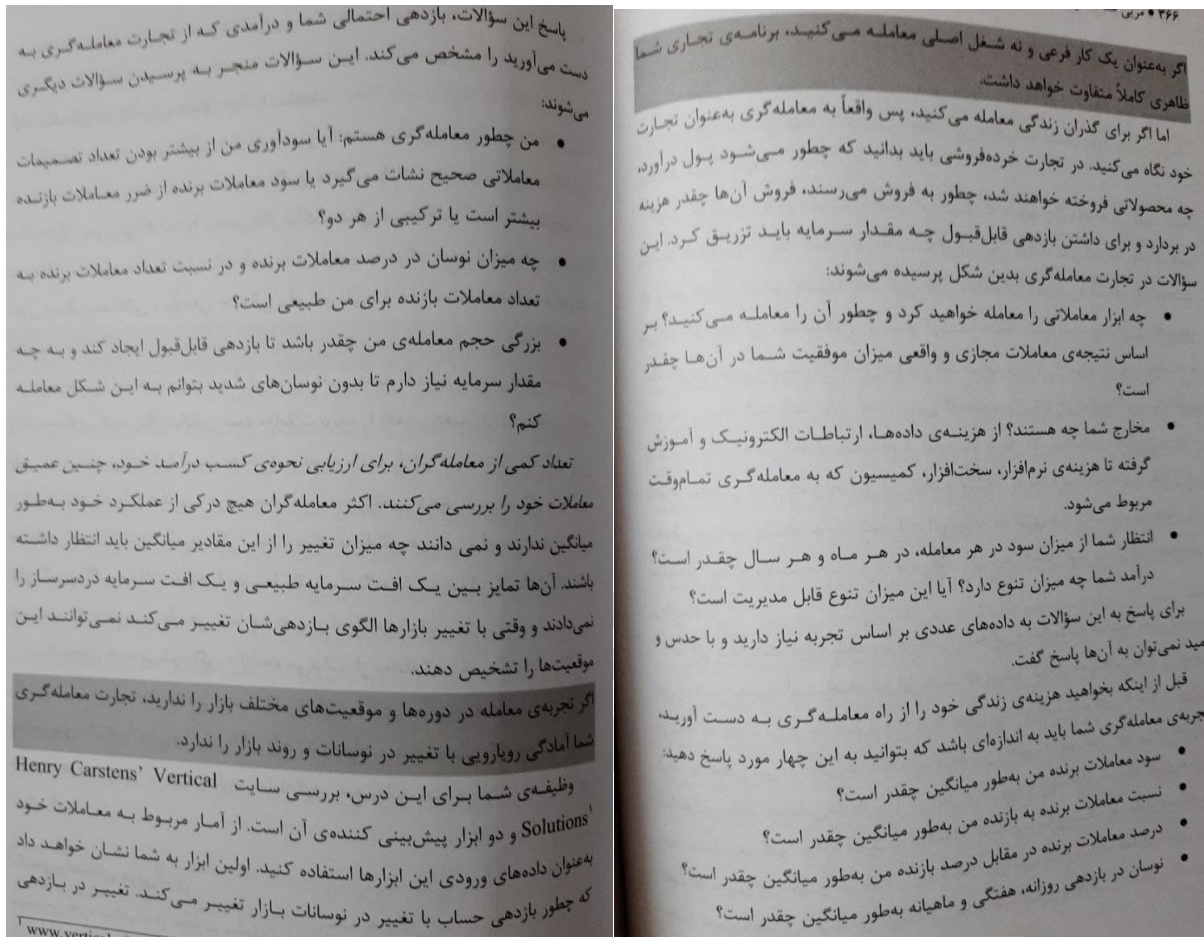 ۳۶۶ • مربی
اگر به‌عنوان یک کار فرعی و نه شغل اصلی معامله می‌کنید، برنامه‌ی تجاری شما
ظاهری کاملاً متفاوت خواهد داشت.
اما اگر برای گذران زندگی معامله می‌کنید، پس واقعاً به معامله‌گری به‌عنوان تجارت
خود نگاه می‌کنید. در تجارت خرده‌فروشی باید بدانید که چطور می‌شود پول درآورد،
چه محصولاتی فروخته خواهند شد، چطور به فروش می‌رسند، فروش آن‌ها چقدر هزینه
در بردارد و برای داشتن بازدهی قابل‌قبول چه مقدار سرمایه باید تزریق کرد. این
سؤالات در تجارت معامله‌گری بدین شکل پرسیده می‌شوند:
• چه ابزار معاملاتی را معامله خواهید کرد و چطور آن را معامله می‌کنید؟ بر
اساس نتیجه‌ی معاملات مجازی و واقعی میزان موفقیت شما در آن‌ها چقدر
است؟
• مخارج شما چه هستند؟ از هزینه‌ی داده‌ها، ارتباطات الکترونیک و آموزش
گرفته تا هزینه‌ی نرم‌افزار، سخت‌افزار، کمیسیون که به معامله‌گری تمام‌وقت
مربوط می‌شود.
• انتظار شما از میزان سود در هر معامله، در هر ماه و هر سال چقدر است؟
درآمد شما چه میزان تنوع دارد؟ آیا این میزان تنوع قابل مدیریت است؟
برای پاسخ به این سؤالات به داده‌های عددی بر اساس تجربه نیاز دارید و با حدس و
مید نمی‌توان به آن‌ها پاسخ گفت.
قبل از اینکه بخواهید هزینه‌ی زندگی خود را از راه معامله‌گری به دست آورید،
جربه‌ی معامله‌گری شما باید به اندازه‌ای باشد که بتوانید به این چهار مورد پاسخ دهید:
• سود معاملات برنده من به‌طور میانگین چقدر است؟
• نسبت معاملات برنده به بازنده من به‌طور میانگین چقدر است؟
• درصد معاملات برنده در مقابل درصد بازنده من به‌طور میانگین چقدر است؟
• نوسان در بازدهی روزانه، هفتگی و ماهیانه به‌طور میانگین چقدر است؟
پاسخ این سؤالات، بازدهی احتمالی شما و درآمدی که از تجارت معامله‌گری به
دست می‌آورید را مشخص می‌کند. این سؤالات منجر به پرسیدن سؤالات دیگری
می‌شوند:
• من چطور معامله‌گری هستم: آیا سودآوری من از بیشتر بودن تعداد تصمیمات
معاملاتی صحیح نشات می‌گیرد یا سود معاملات برنده از ضرر معاملات بازنده
بیشتر است یا ترکیبی از هر دو؟
• چه میزان نوسان در درصد معاملات برنده و در نسبت تعداد معاملات برنده به
تعداد معاملات بازنده برای من طبیعی است؟
• بزرگی حجم معامله‌ی من چقدر باشد تا بازدهی قابل‌قبول ایجاد کند و به چه
مقدار سرمایه نیاز دارم تا بدون نوسان‌های شدید بتوانم به این شکل معامله
کنم؟
تعداد کمی از معامله‌گران، برای ارزیابی نحوه‌ی کسب درآمد خود، چنین عمیق
معاملات خود را بررسی می‌کنند. اکثر معامله‌گران هیچ درکی از عملکرد خود به‌طور
میانگین ندارند و نمی دانند چه میزان تغییر را از این مقادیر میانگین باید انتظار داشته
باشند. آن‌ها تمایز بین یک افت سرمایه طبیعی و یک افت سرمایه دردسرساز را
نمی‌دادند و وقتی با تغییر بازارها الگوی بازدهی‌شان تغییر می‌کند نمی‌توانند این
موقعیت‌ها را تشخیص دهند.
اگر تجربه‌ی معامله در دوره‌ها و موقعیت‌های مختلف بازار را ندارید، تجارت معامله‌گری
شما آمادگی رویارویی با تغییر در نوسانات و روند بازار را ندارد.
وظیفه‌ی شما برای این درس، بررسی سایت Henry Carstens' Vertical
Solutions¹ و دو ابزار پیش‌بینی کننده‌ی آن است. از آمار مربوط به معاملات خود
به‌عنوان داده‌های ورودی این ابزارها استفاده کنید. اولین ابزار به شما نشان خواهد داد
که چطور بازدهی حساب با تغییر در نوسانات بازار تغییر می‌کند. تغییر در بازدهی